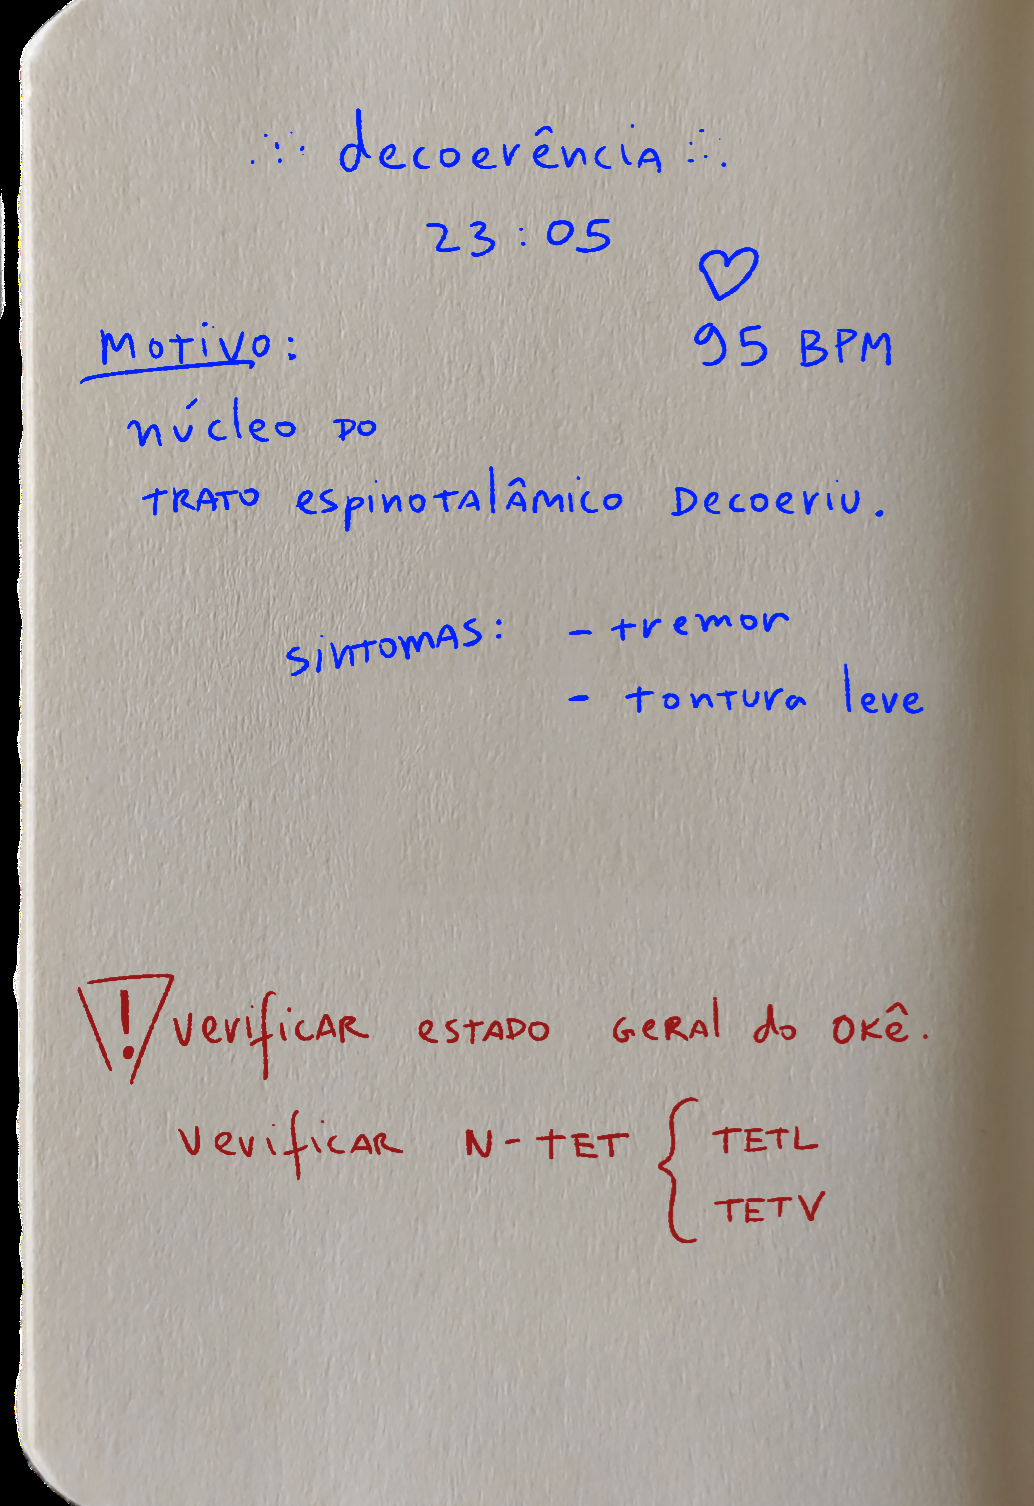 decoerência
23:05
95 BPM
Motivo:
núcleo do
trato espinotalâmico decoeriu.
sintomas: - tremor
- tontura leve
! verificar estado geral do okê.
verificar N-TET { TETL
TETV